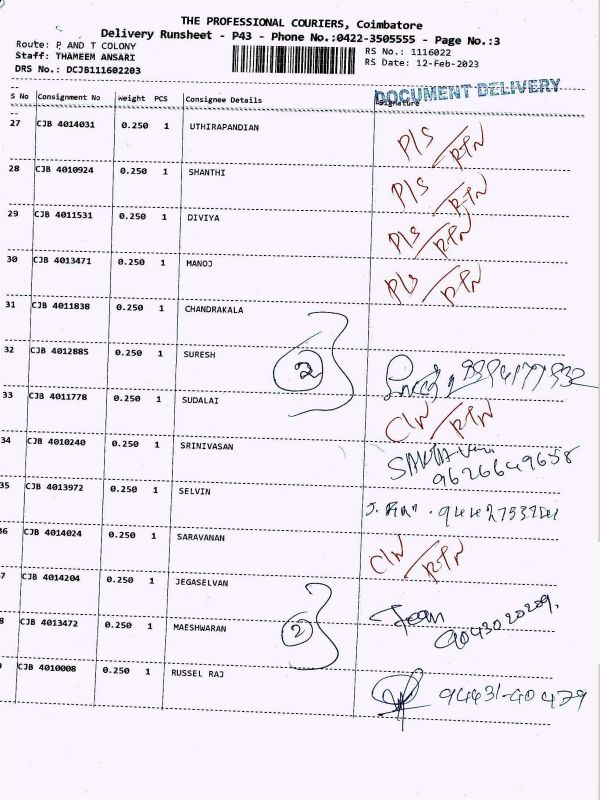 THE PROFESSIONAL COURIERS, Coimbatore
Delivery Runsheet - P43 - Phone No.:0422-3505555 - Page No.:3
Route: P AND T COLONY
Staff: THAMEEM ANSARI
DRS No.: DCJB111602203
RS No.: 1116022
RS Date: 12-Feb-2023
DOCUMENT DELIVERY
S No Consignment No Weight PCS Consignee Details Signature
27 CJB 4014031 0.250 1 UTHIRAPANDIAN P/S RTN
28 CJB 4010924 0.250 1 SHANTHI P/S RTN
29 CJB 4011531 0.250 1 DIVIYA P/S RTN
30 CJB 4013471 0.250 1 MANOJ P/S RTN
31 CJB 4011838 0.250 1 CHANDRAKALA
32 CJB 4012885 0.250 1 SURESH 2
33 CJB 4011778 0.250 1 SUDALAI C/N RTN
34 CJB 4010240 0.250 1 SRINIVASAN 9626649658
35 CJB 4013972 0.250 1 SELVIN
36 CJB 4014024 0.250 1 SARAVANAN C/N RTN
7 CJB 4014204 0.250 1 JEGASELVAN
8 CJB 4013472 0.250 1 MAESHWARAN 2 Jean 9043020209.
CJB 4010008 0.250 1 RUSSEL RAJ 94431-40479